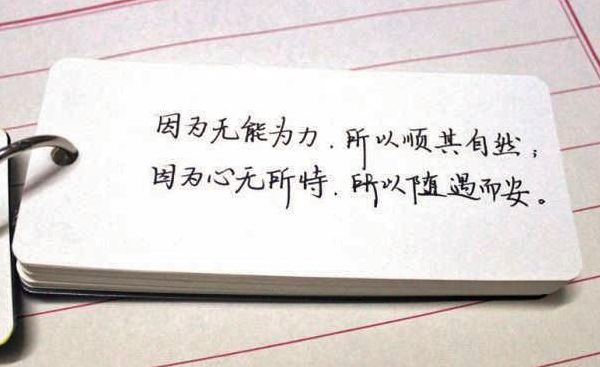 因为无能为力．所以顺其自然；
因为心无所恃．所以随遇而安。